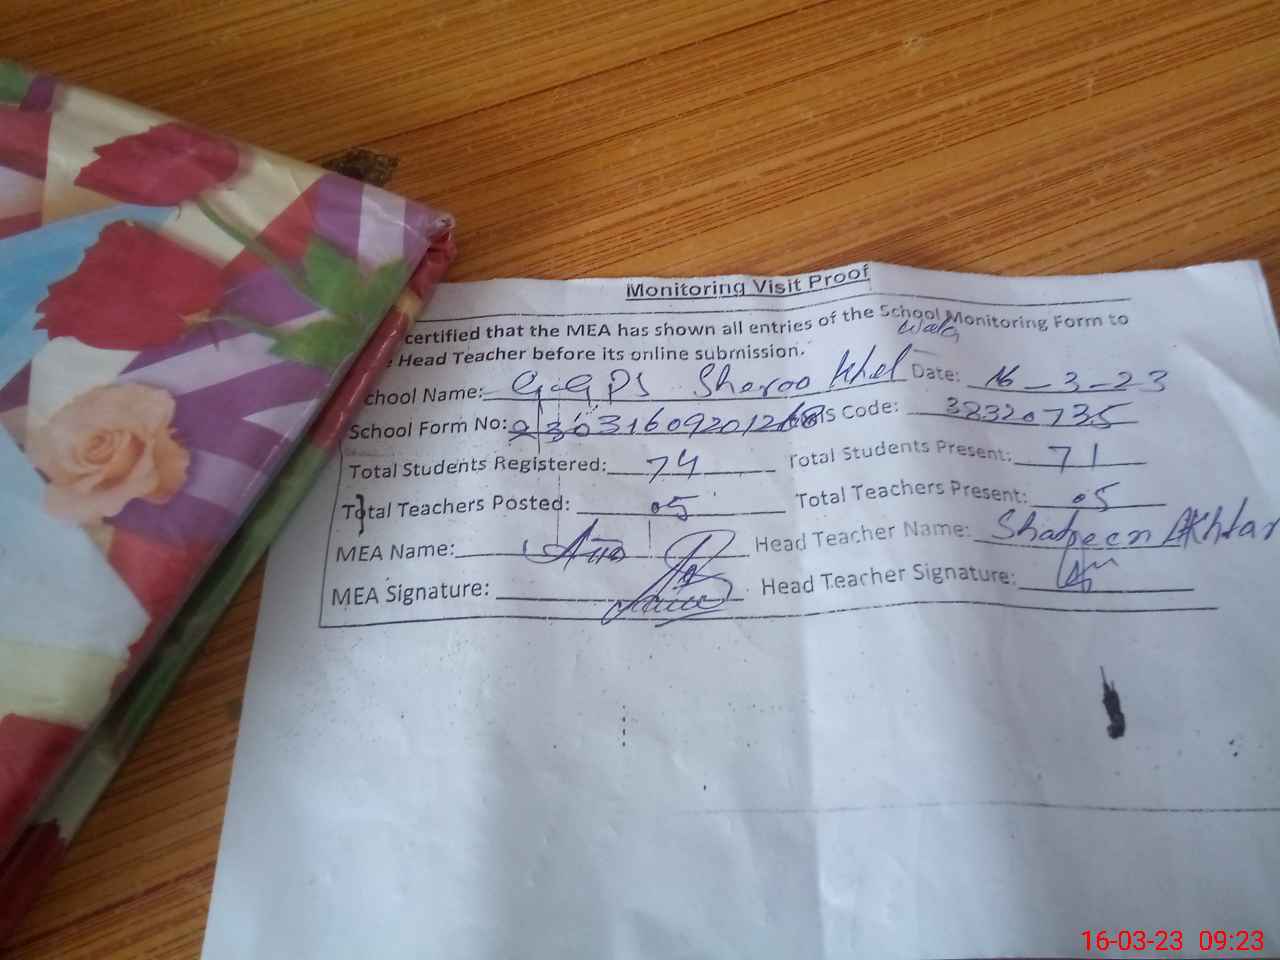 Monitoring Visit Proof
certified that the MEA has shown all entries of the School Monitoring Form to
Head Teacher before its online submission.
chool Name: G.GPS Sheroo Khel Wala Date: 16-3-23
School Form No: is Code: 38320735
Total Students Registered: 74 Total Students Present: 71
Total Teachers Posted: 05 Total Teachers Present: 05
MEA Name: Head Teacher Name: Akhtar
MEA Signature: Head Teacher Signature:
16-03-23 09:23